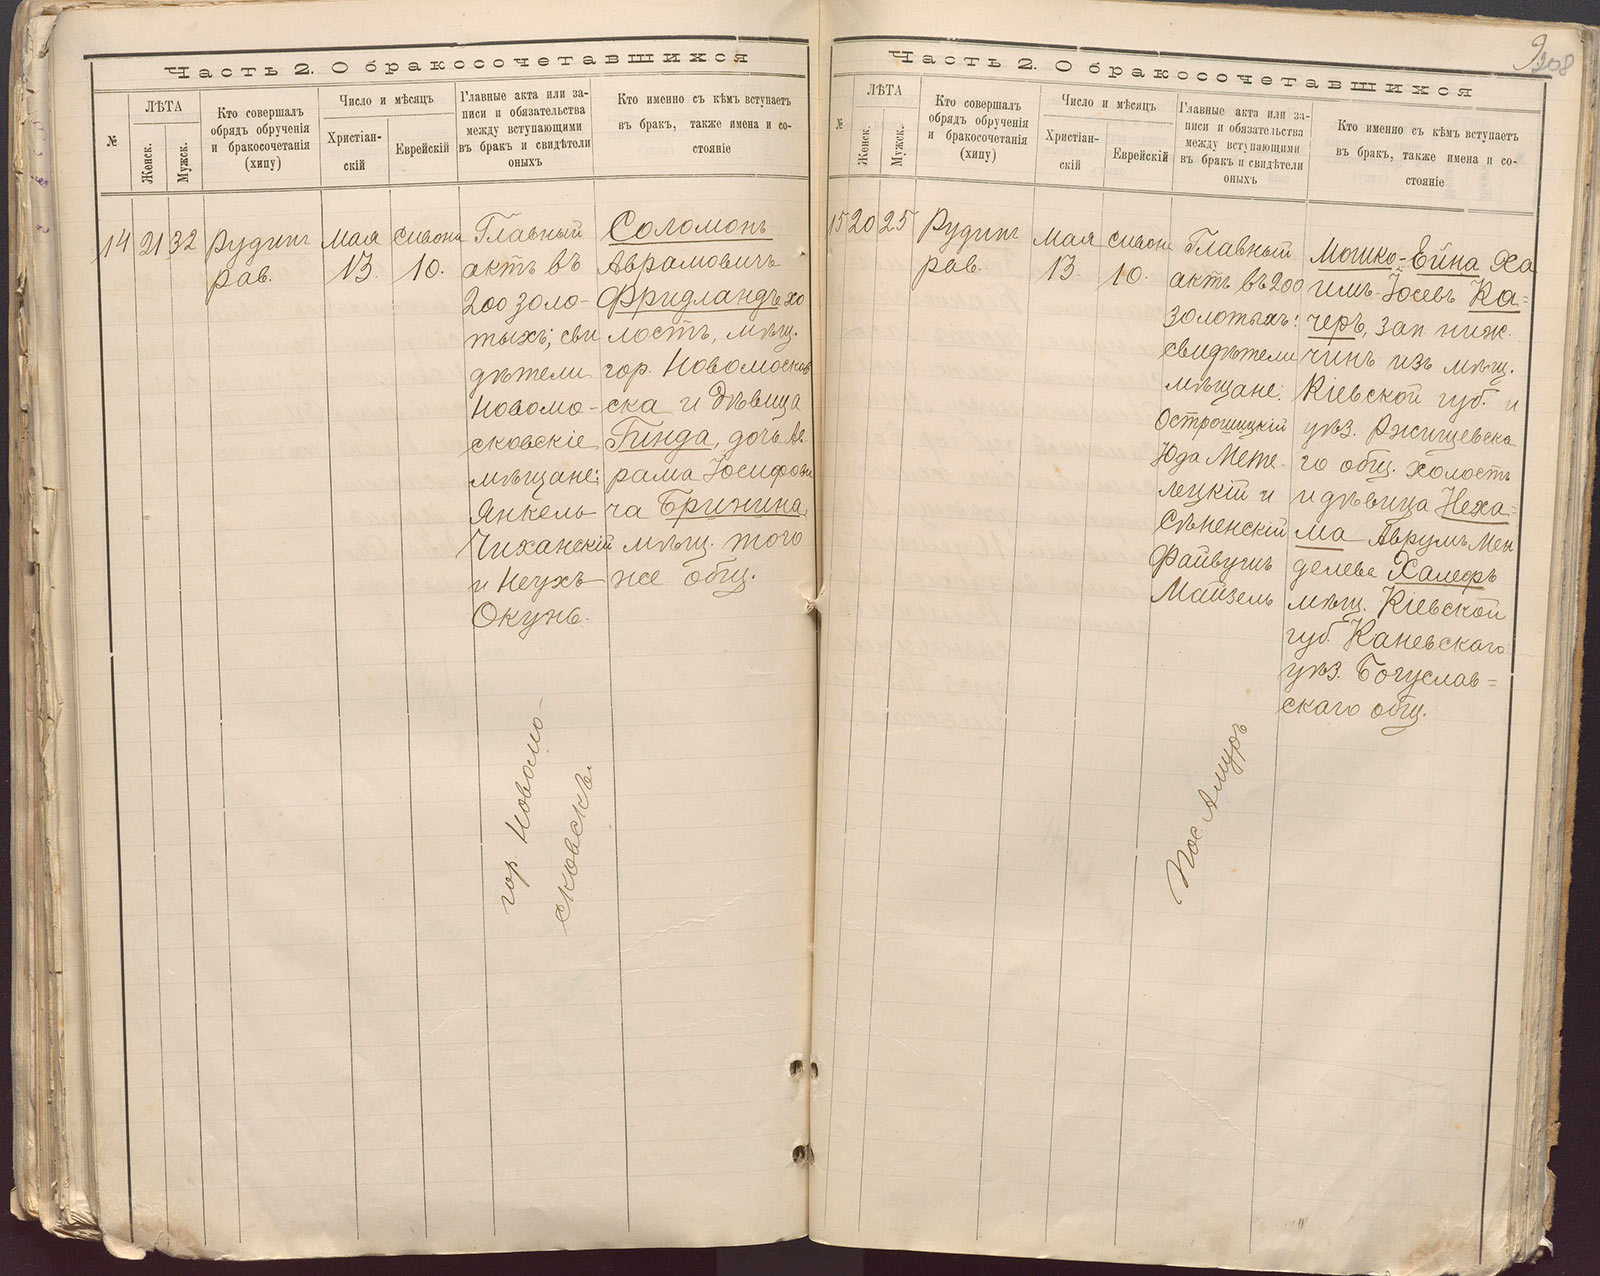 Часть 2. О бракосочетавшихся
№
ЛѢТА
Женск.
Мужск.
Кто совершалъ
обрядъ обрученія
и бракосочетанія
(хипу)
Число и мѣсяцъ
Христіан-
скій
Еврейскій
Главные акта или за-
писи и обязательства
между вступающими
въ бракъ и свидѣтели
оныхъ
Кто именно съ кѣмъ вступаетъ
въ бракъ, также имена и со-
стояніе
14
21
32
Рудинг
рав.
Мая
13.
Сивона
10.
Главный
актъ въ
200 золо-
тыхъ; сви
дѣтели
Новомо-
сковскіе
мѣщане:
Янкель
Чиханскій
и Неухъ
Окунь.
Соломонъ
Аврамовичъ
Фридландъ хо
лостъ, мѣщ.
гор. Новомосков
ска и дѣвица
Гинда, дочь Ав
рама Іосифови
ча Бринина,
мѣщ. того
же общ.
гор. Новомо-
сковскъ.
9
208
Часть 2. О бракосочетавшихся
№
ЛѢТА
Женск.
Мужск.
Кто совершалъ
обрядъ обрученія
и бракосочетанія
(хипу)
Число и мѣсяцъ
Христіан-
скій
Еврейскій
Главные акта или за-
писи и обязательства
между вступающими
въ бракъ и свидѣтели
оныхъ
Кто именно съ кѣмъ вступаетъ
въ бракъ, также имена и со-
стояніе
15
20
25
Рудинг
рав.
Мая
13.
Сивона
10.
Главный
актъ въ 200
золотыхъ:
свидѣтели
мѣщане:
Острошицкій
Юда Мете-
лецкій и
Сѣненскій
Файвушъ
Майзель
Мошко-Ейна Ха
имъ-Іосевъ Ка=
черъ, зап. ниж.
чинъ изъ мѣщ.
Кіевской губ. и
уѣз. Ржищевска
го общ. холостъ
и дѣвица Неха=
ма Аврумъ Мен
делева Халефъ
мѣщ. Кіевской
губ. Каневскаго
уѣз. Богуслав=
скаго общ.
Пос. Амуръ